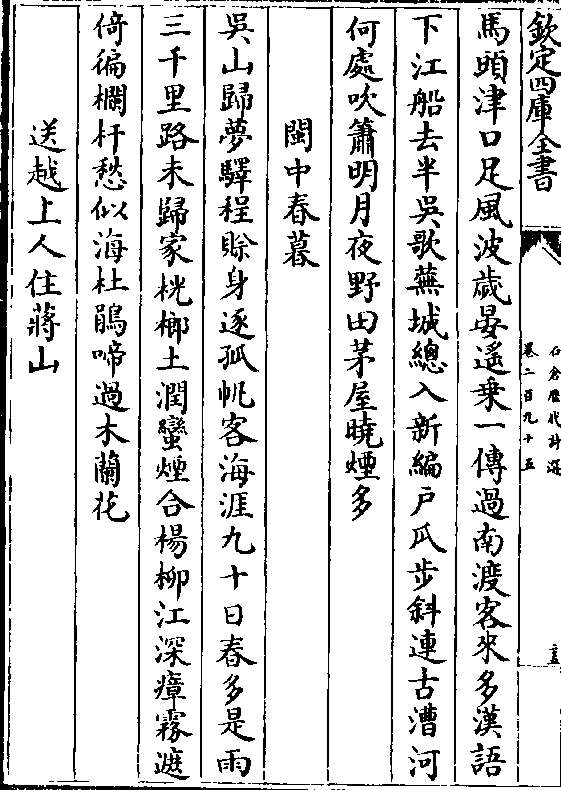 欽定四庫全書
石倉歷代詩選
卷二百九十五
馬頭津口足風波歲晏遙乗一傳過南渡客來多漢語
下江船去半吳歌蕪城總入新編戸瓜步斜連古漕河
何處吹簫明月夜野田茅屋曉煙多
閩中春暮
吳山歸夢驛程賒身逐孤帆客海涯九十日春多是雨
三千里路未歸家桄榔土潤蠻煙合楊柳江深瘴霧遮
倚徧欄杆愁似海杜鵑啼過木蘭花
送越上人住蔣山